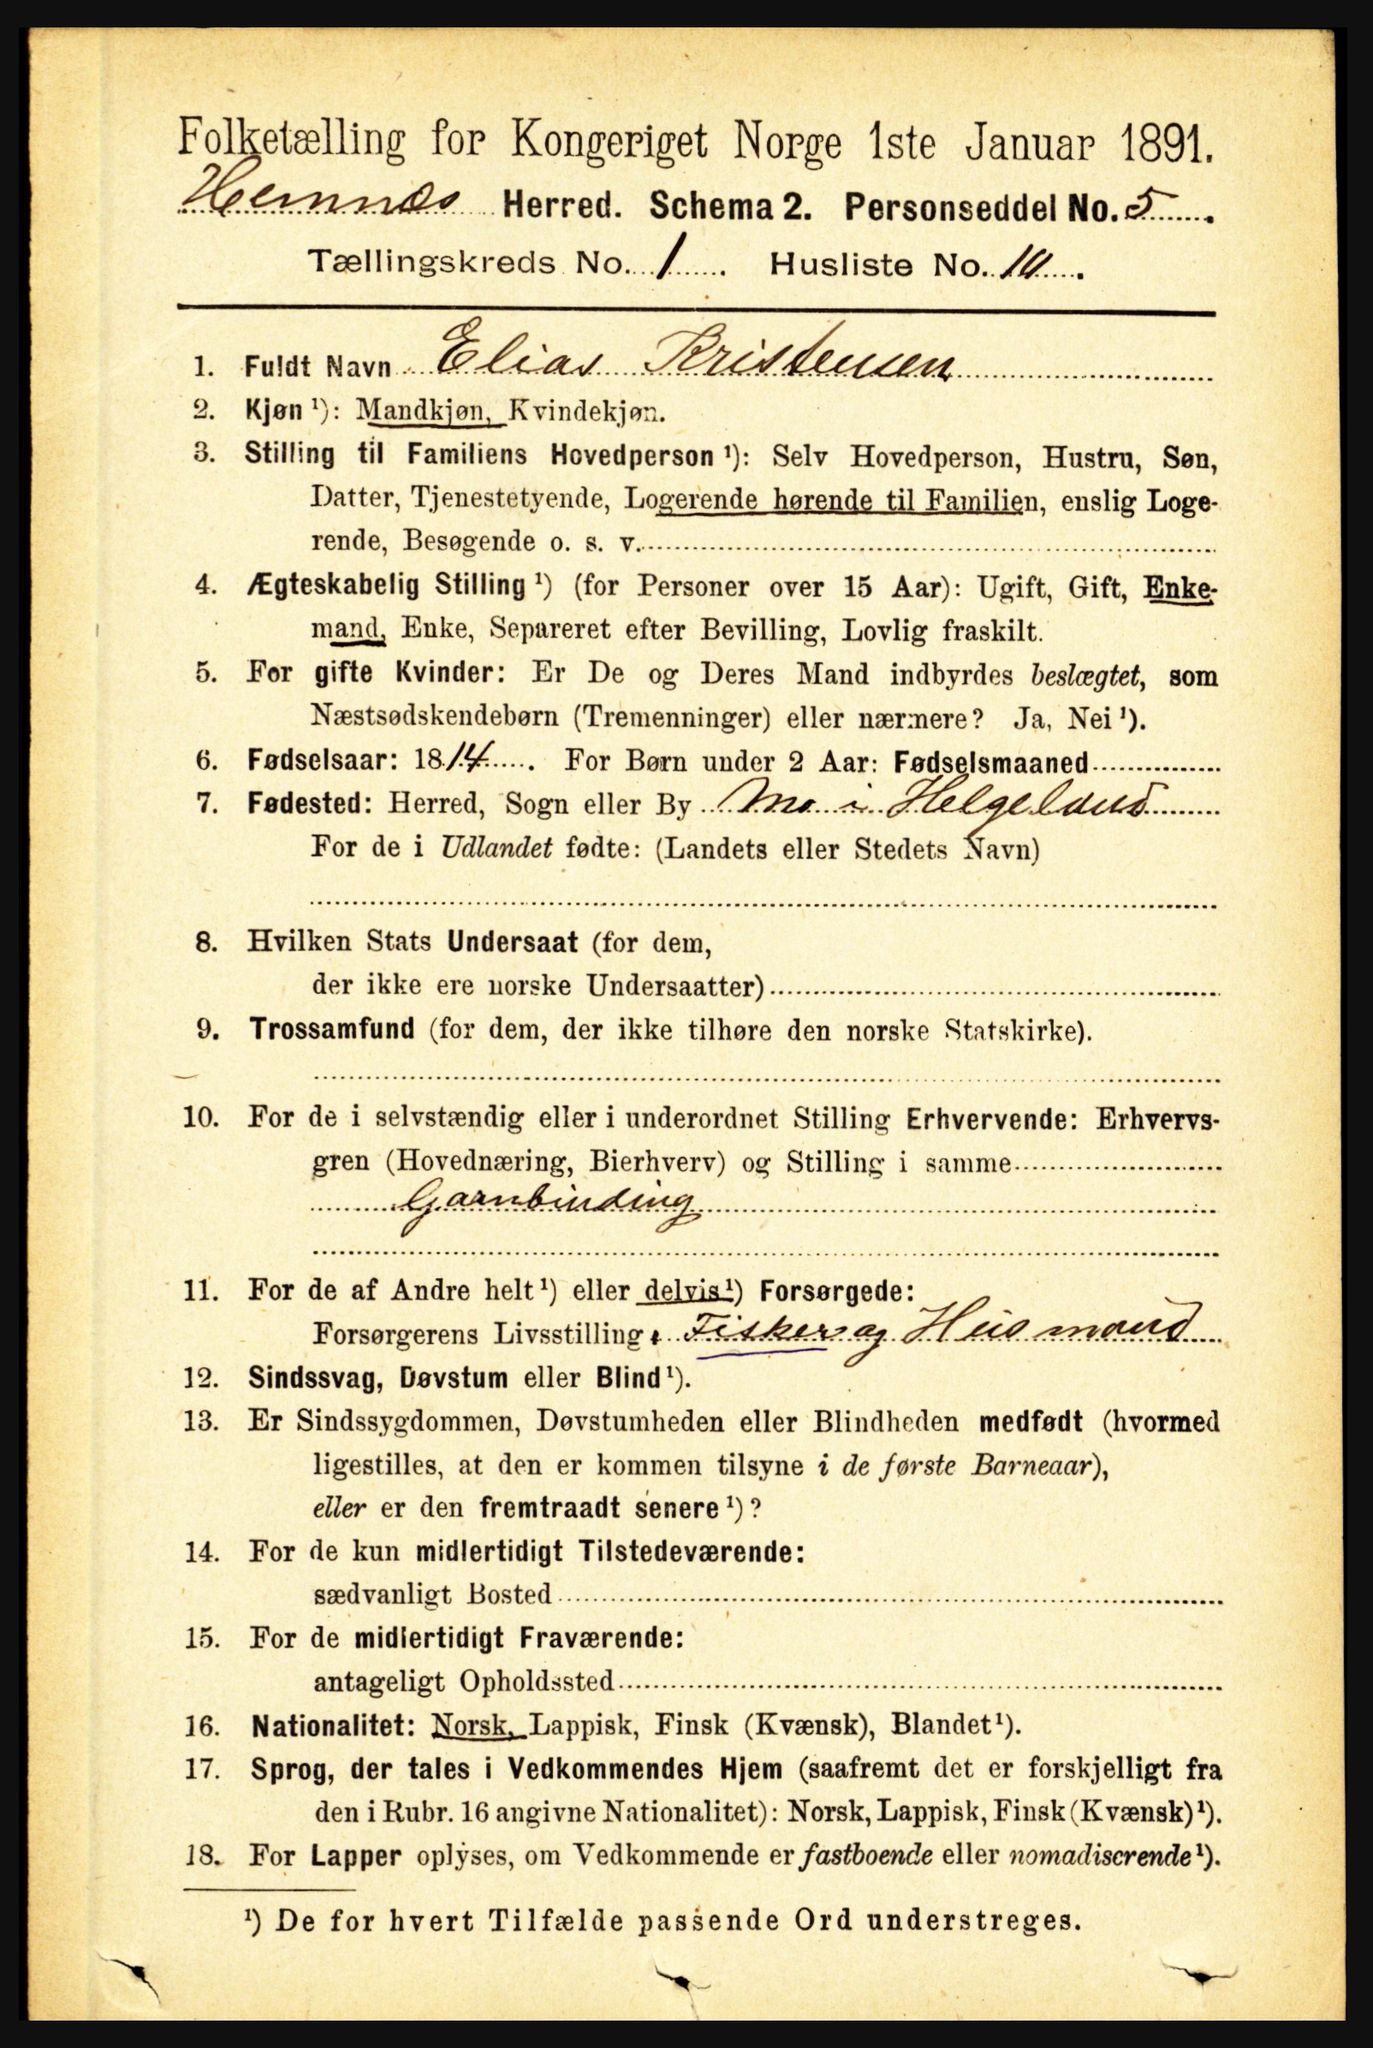 Folketælling for Kongeriget Norge 1ste Januar 1891.
Hemnæs Herred. Schema 2. Personseddel No. 5.
Tællingskreds No. 1. Husliste No. 10.
1. Fuldt Navn Elias Kristensen
2. Kjøn ¹): Mandkjøn, Kvindekjøn.
3. Stilling til Familiens Hovedperson ¹): Selv Hovedperson, Hustru, Søn,
Datter, Tjenestetyende, Logerende hørende til Familien, enslig Loge-
rende, Besøgende o. s. v.
4. Ægteskabelig Stilling ¹) (for Personer over 15 Aar): Ugift, Gift, Enke-
mand, Enke, Separeret efter Bevilling, Lovlig fraskilt.
5. For gifte Kvinder: Er De og Deres Mand indbyrdes beslægtet, som
Næstsødskendebørn (Tremenninger) eller nærmere? Ja, Nei ¹).
6. Fødselsaar: 1814. For Børn under 2 Aar: Fødselsmaaned
7. Fødested: Herred, Sogn eller By Mo i Helgeland
For de i Udlandet fødte: (Landets eller Stedets Navn)
8. Hvilken Stats Undersaat (for dem,
der ikke ere norske Undersaatter)
9. Trossamfund (for dem, der ikke tilhøre den norske Statskirke).
10. For de i selvstændig eller i underordnet Stilling Erhvervende: Erhvervs-
gren (Hovednæring, Bierhverv) og Stilling i samme
Garnbinding
11. For de af Andre helt ¹) eller delvis ¹) Forsørgede:
Forsørgerens Livsstilling: Fisker og Husmand
12. Sindssvag, Døvstum eller Blind ¹).
13. Er Sindssygdommen, Døvstumheden eller Blindheden medfødt (hvormed
ligestilles, at den er kommen tilsyne i de første Barneaar),
eller er den fremtraadt senere ¹)?
14. For de kun midlertidigt Tilstedeværende:
sædvanligt Bosted
15. For de midlertidigt Fraværende:
antageligt Opholdssted
16. Nationalitet: Norsk, Lappisk, Finsk (Kvænsk), Blandet ¹).
17. Sprog, der tales i Vedkommendes Hjem (saafremt det er forskjelligt fra
den i Rubr. 16 angivne Nationalitet): Norsk, Lappisk, Finsk (Kvænsk) ¹).
18. For Lapper oplyses, om Vedkommende er fastboende eller nomadiserende ¹).
¹) De for hvert Tilfælde passende Ord understreges.